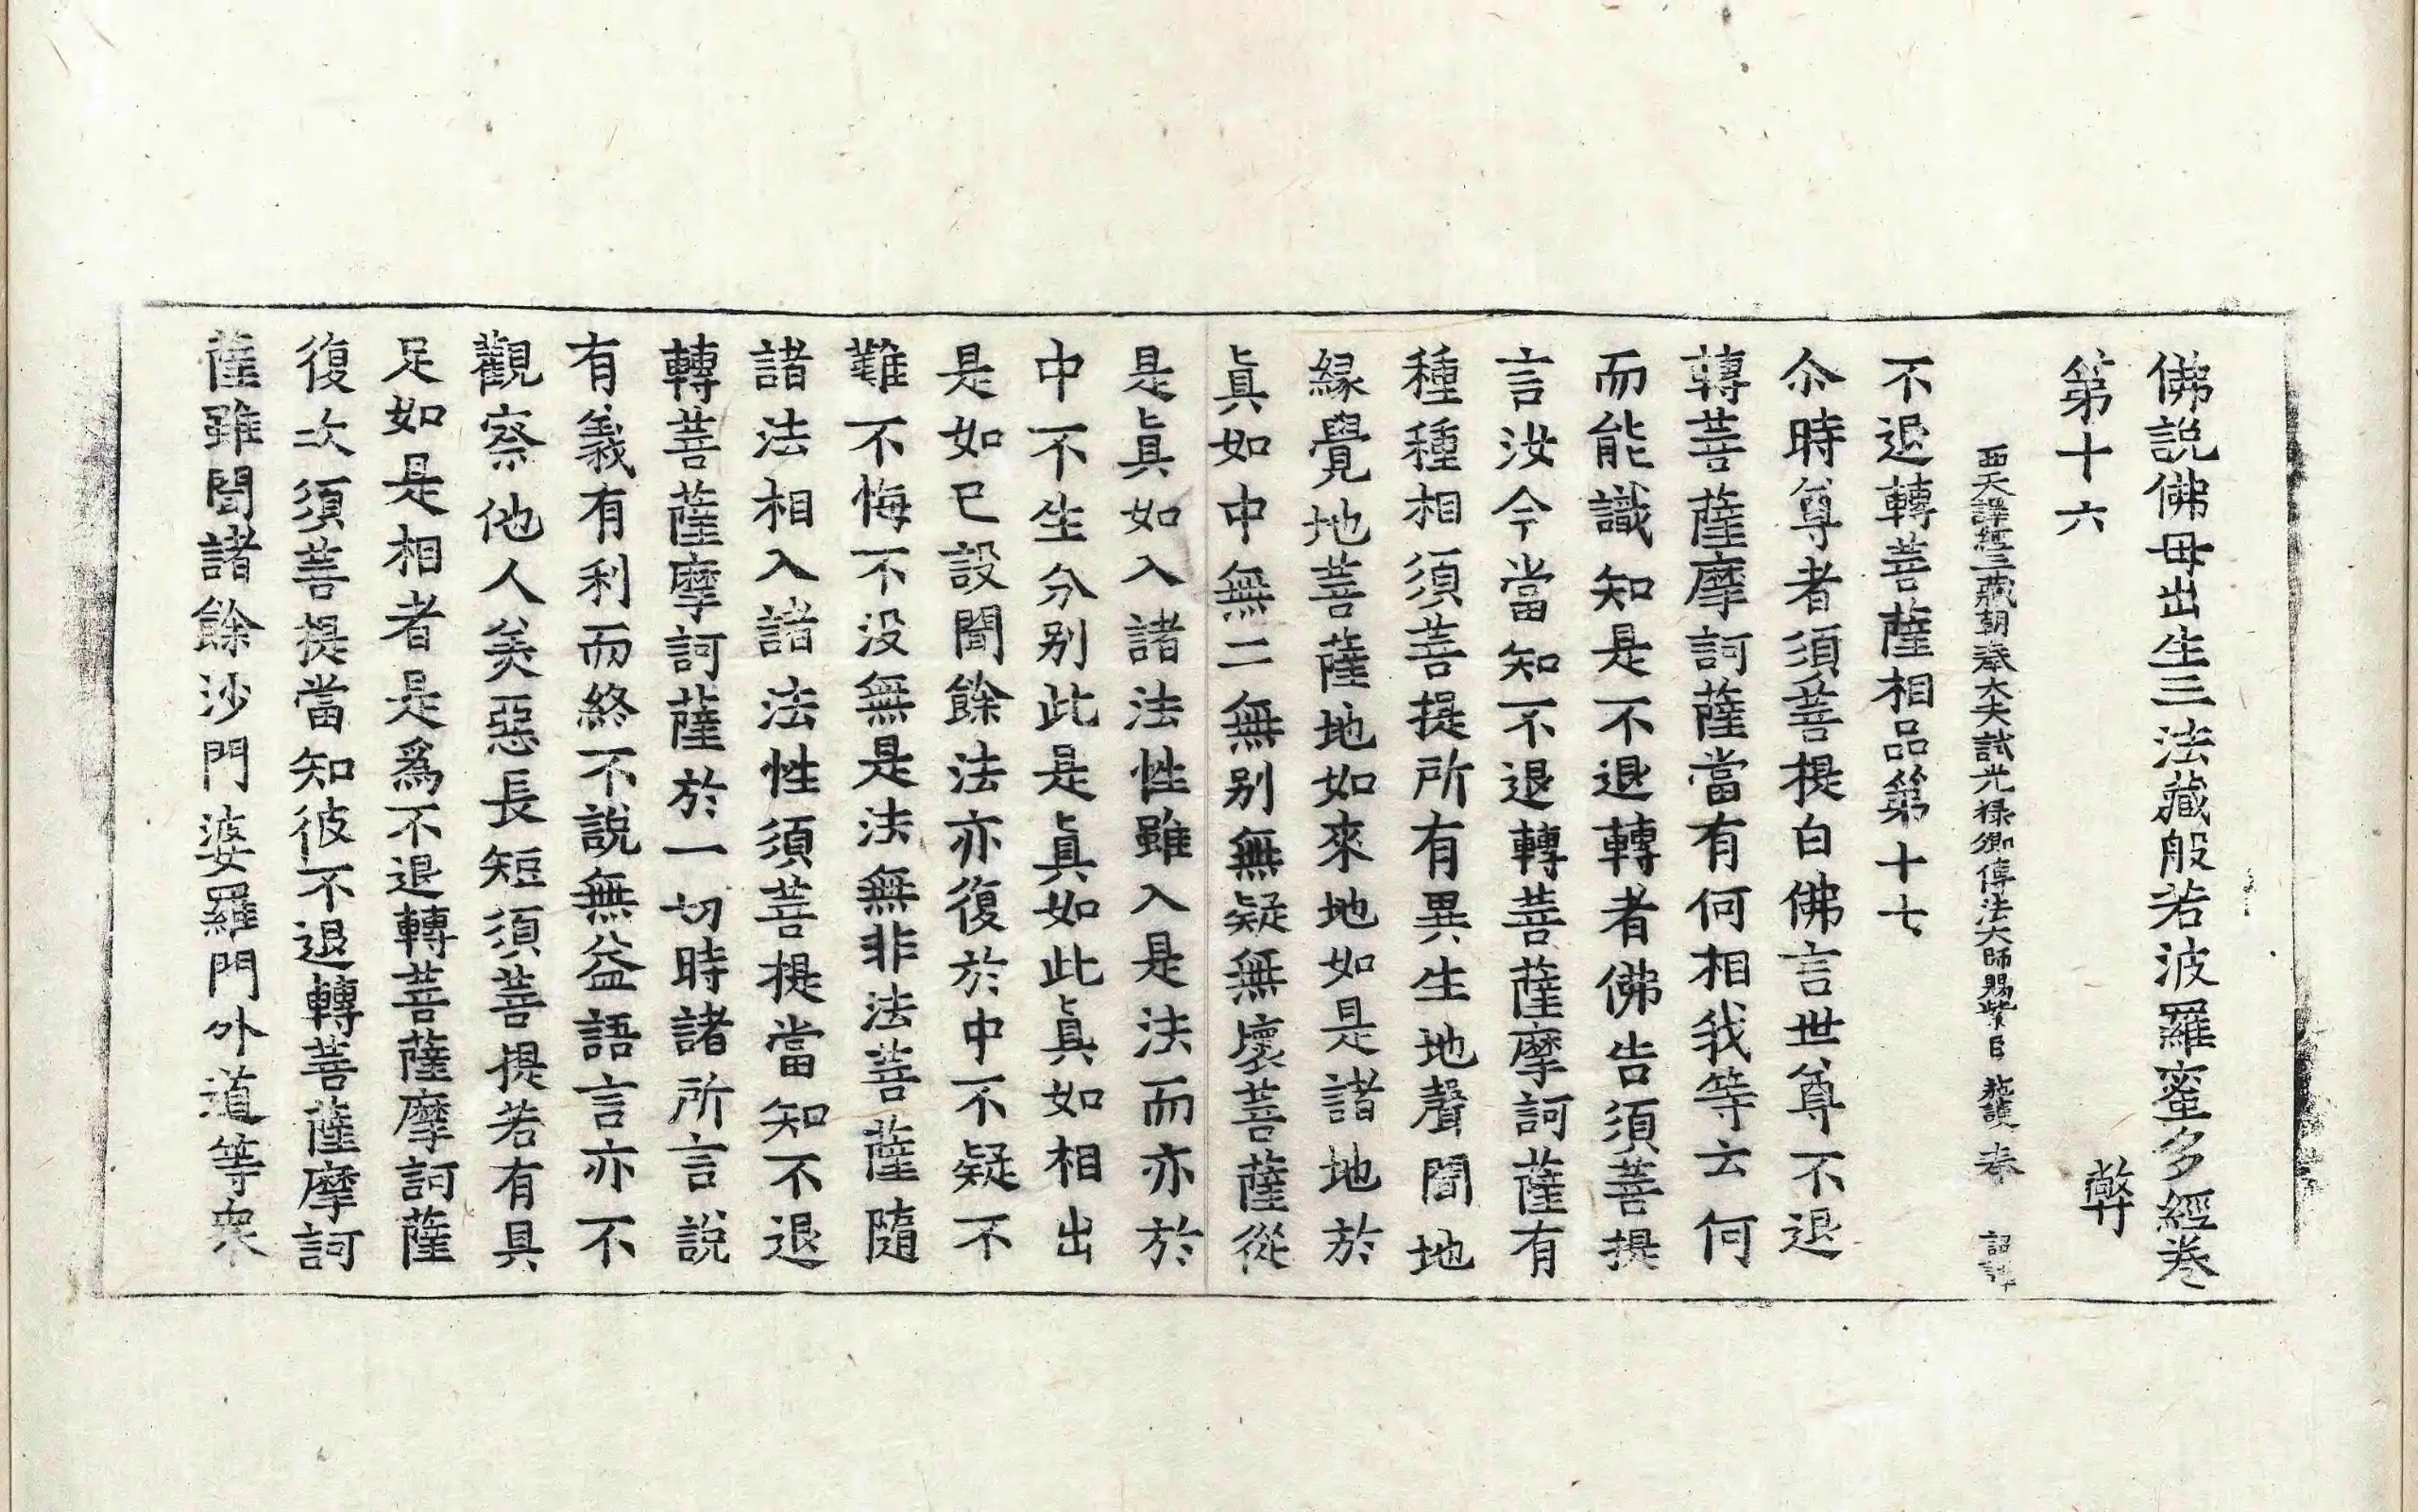 佛說佛母出生三法藏般若波羅蜜多經卷
第十六 弊
西天譯經三藏朝奉大夫試光祿卿傳法大師賜紫臣 施護 奉 詔譯
不退轉菩薩相品第十七
尒時尊者須菩提白佛言世尊不退
轉菩薩摩訶薩當有何相我等云何
而能識知是不退轉者佛告須菩提
言汝今當知不退轉菩薩摩訶薩有
種種相須菩提所有異生地聲聞地
緣覺地菩薩地如來地如是諸地於
眞如中無二無别無疑無壞菩薩從
是眞如入諸法性雖入是法而亦於
中不生分别此是眞如此眞如相出
是如已設聞餘法亦復於中不疑不
難不悔不没無是法無非法菩薩隨
諸法相入諸法性須菩提當知不退
轉菩薩摩訶薩於一切時諸所言說
有義有利而終不說無益語言亦不
觀察他人羙惡長短須菩提若有具
足如是相者是爲不退轉菩薩摩訶薩
復次須菩提當知彼不退轉菩薩摩訶
薩雖聞諸餘沙門婆羅門外道等衆